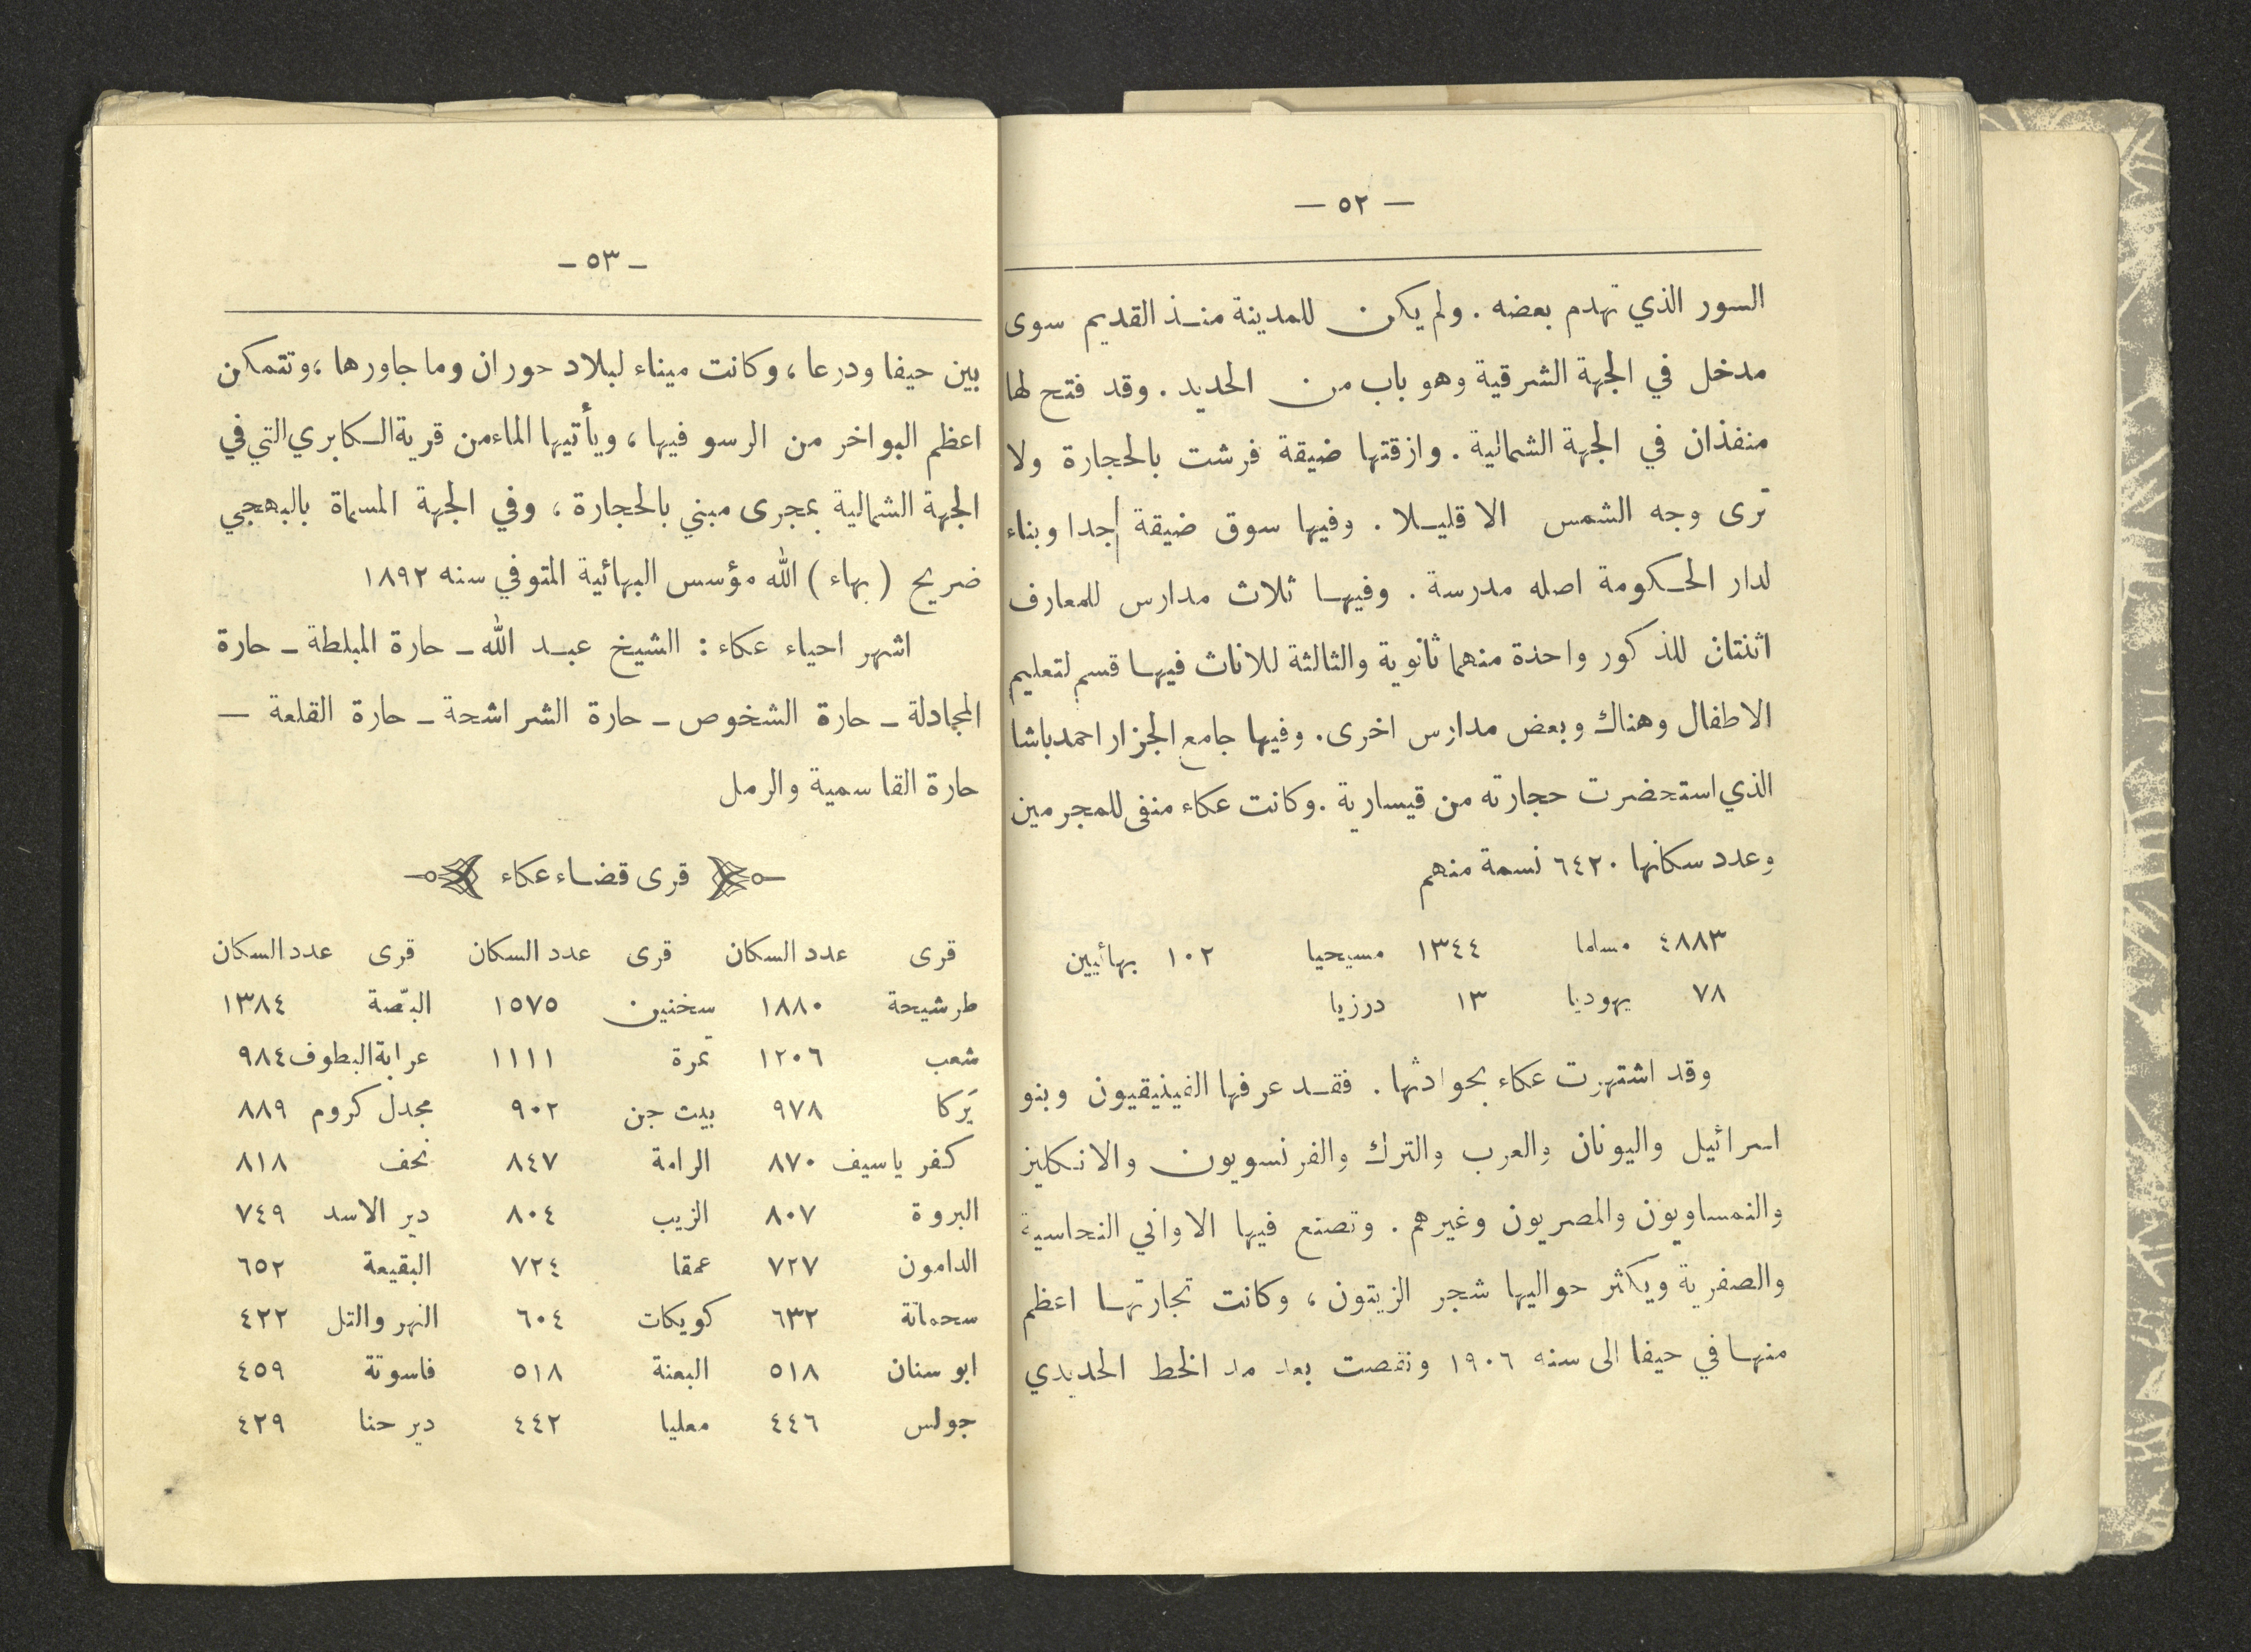 — ٥٢ —
السور الذي تهدم بعضه . ولم يكن للمدينة منذ القديم سوى
مدخل في الجهة الشرقية وهو باب من الحديد . وقد فتح لها
منفذان في الجهة الشمالية . وازقتها ضيقة فرشت بالحجارة ولا
ترى وجه الشمس الا قليلا . وفيها سوق ضيقة جدا وبناء
لدار الحكومة اصله مدرسة . وفيها ثلاث مدارس للمعارف
اثنتان للذكور واحدة منهما ثانوية والثالثة للاناث فيها قسم لتعليم
الاطفال وهناك وبعض مدارس اخرى. وفيها جامع الجزار احمد باشا
الذي استحضرت حجارته من قيسارية . وكانت عكاء منفى للمجرمين
وعدد سكانها ٦٤٢٠ نسمة منهم
٤٨٨٣ مسلما ١٣٤٤ مسيحيا ١٠٢ بهائيين
٧٨ يهوديا ١٣ درزيا
وقد اشتهرت عكاء بحوادثها . فقد عرفها الفينيقيون وبنو
اسرائيل واليونان والعرب والترك والفرنسويون والانكليز
والنمساويون والمصريون وغيرهم . وتصنع فيها الاواني النحاسية
والصفرية ويكثر حواليها شجر الزيتون ، وكانت تجارتها اعظم
منها في حيفا الى سنه ١٩٠٦ ونقصت بعد مد الخط الحديدي
— ٥٣ —
بين حيفا ودرعا ، وكانت ميناء لبلاد حوران وما جاورها ، وتتمكن
اعظم البواخر من الرسو فيها ، ويأتيها الماء من قرية الكابري التي في
الجهة الشمالية بمجرى مبني بالحجارة ، وفي الجهة المسماة بالبهجي
ضريح ( بهاء ) الله مؤسس البهائية المتوفي سنه ١٨٩٢
اشهر احياء عكاء : الشيخ عبد الله – حارة المبلطة – حارة
المجادلة – حارة الشخوص – حارة الشراشحة – حارة القلعة —
حارة القاسمية والرمل
قرى قضاء عكاء
قرى عدد السكان قرى عدد السكان قرى عدد السكان
طرشيحة ١٨٨٠ سخنين ١٥٧٥ البصّة ١٣٨٤
شعب ١٢٠٦ تمرة ١١١١ عرابة البطوف ٩٨٤
يَركا ٩٧٨ بيت جن ٩٠٢ مجدل كروم ٨٨٩
كفر ياسيف ٨٧٠ الرامة ٨٤٧ نحف ٨١٨
البروة ٨٠٧ الزيب ٨٠٤ دير الاسد ٧٤٩
الدامون ٧٢٧ عمقا ٧٢٤ البقيعة ٦٥٢
سحماتة ٦٣٢ كويكات ٦٠٤ النهر والتل ٤٢٢
ابو سنان ٥١٨ البعنة ٥١٨ فاسوتة ٤٥٩
جولس ٤٤٦ معليا ٤٤٢ دير حنا ٤٢٩